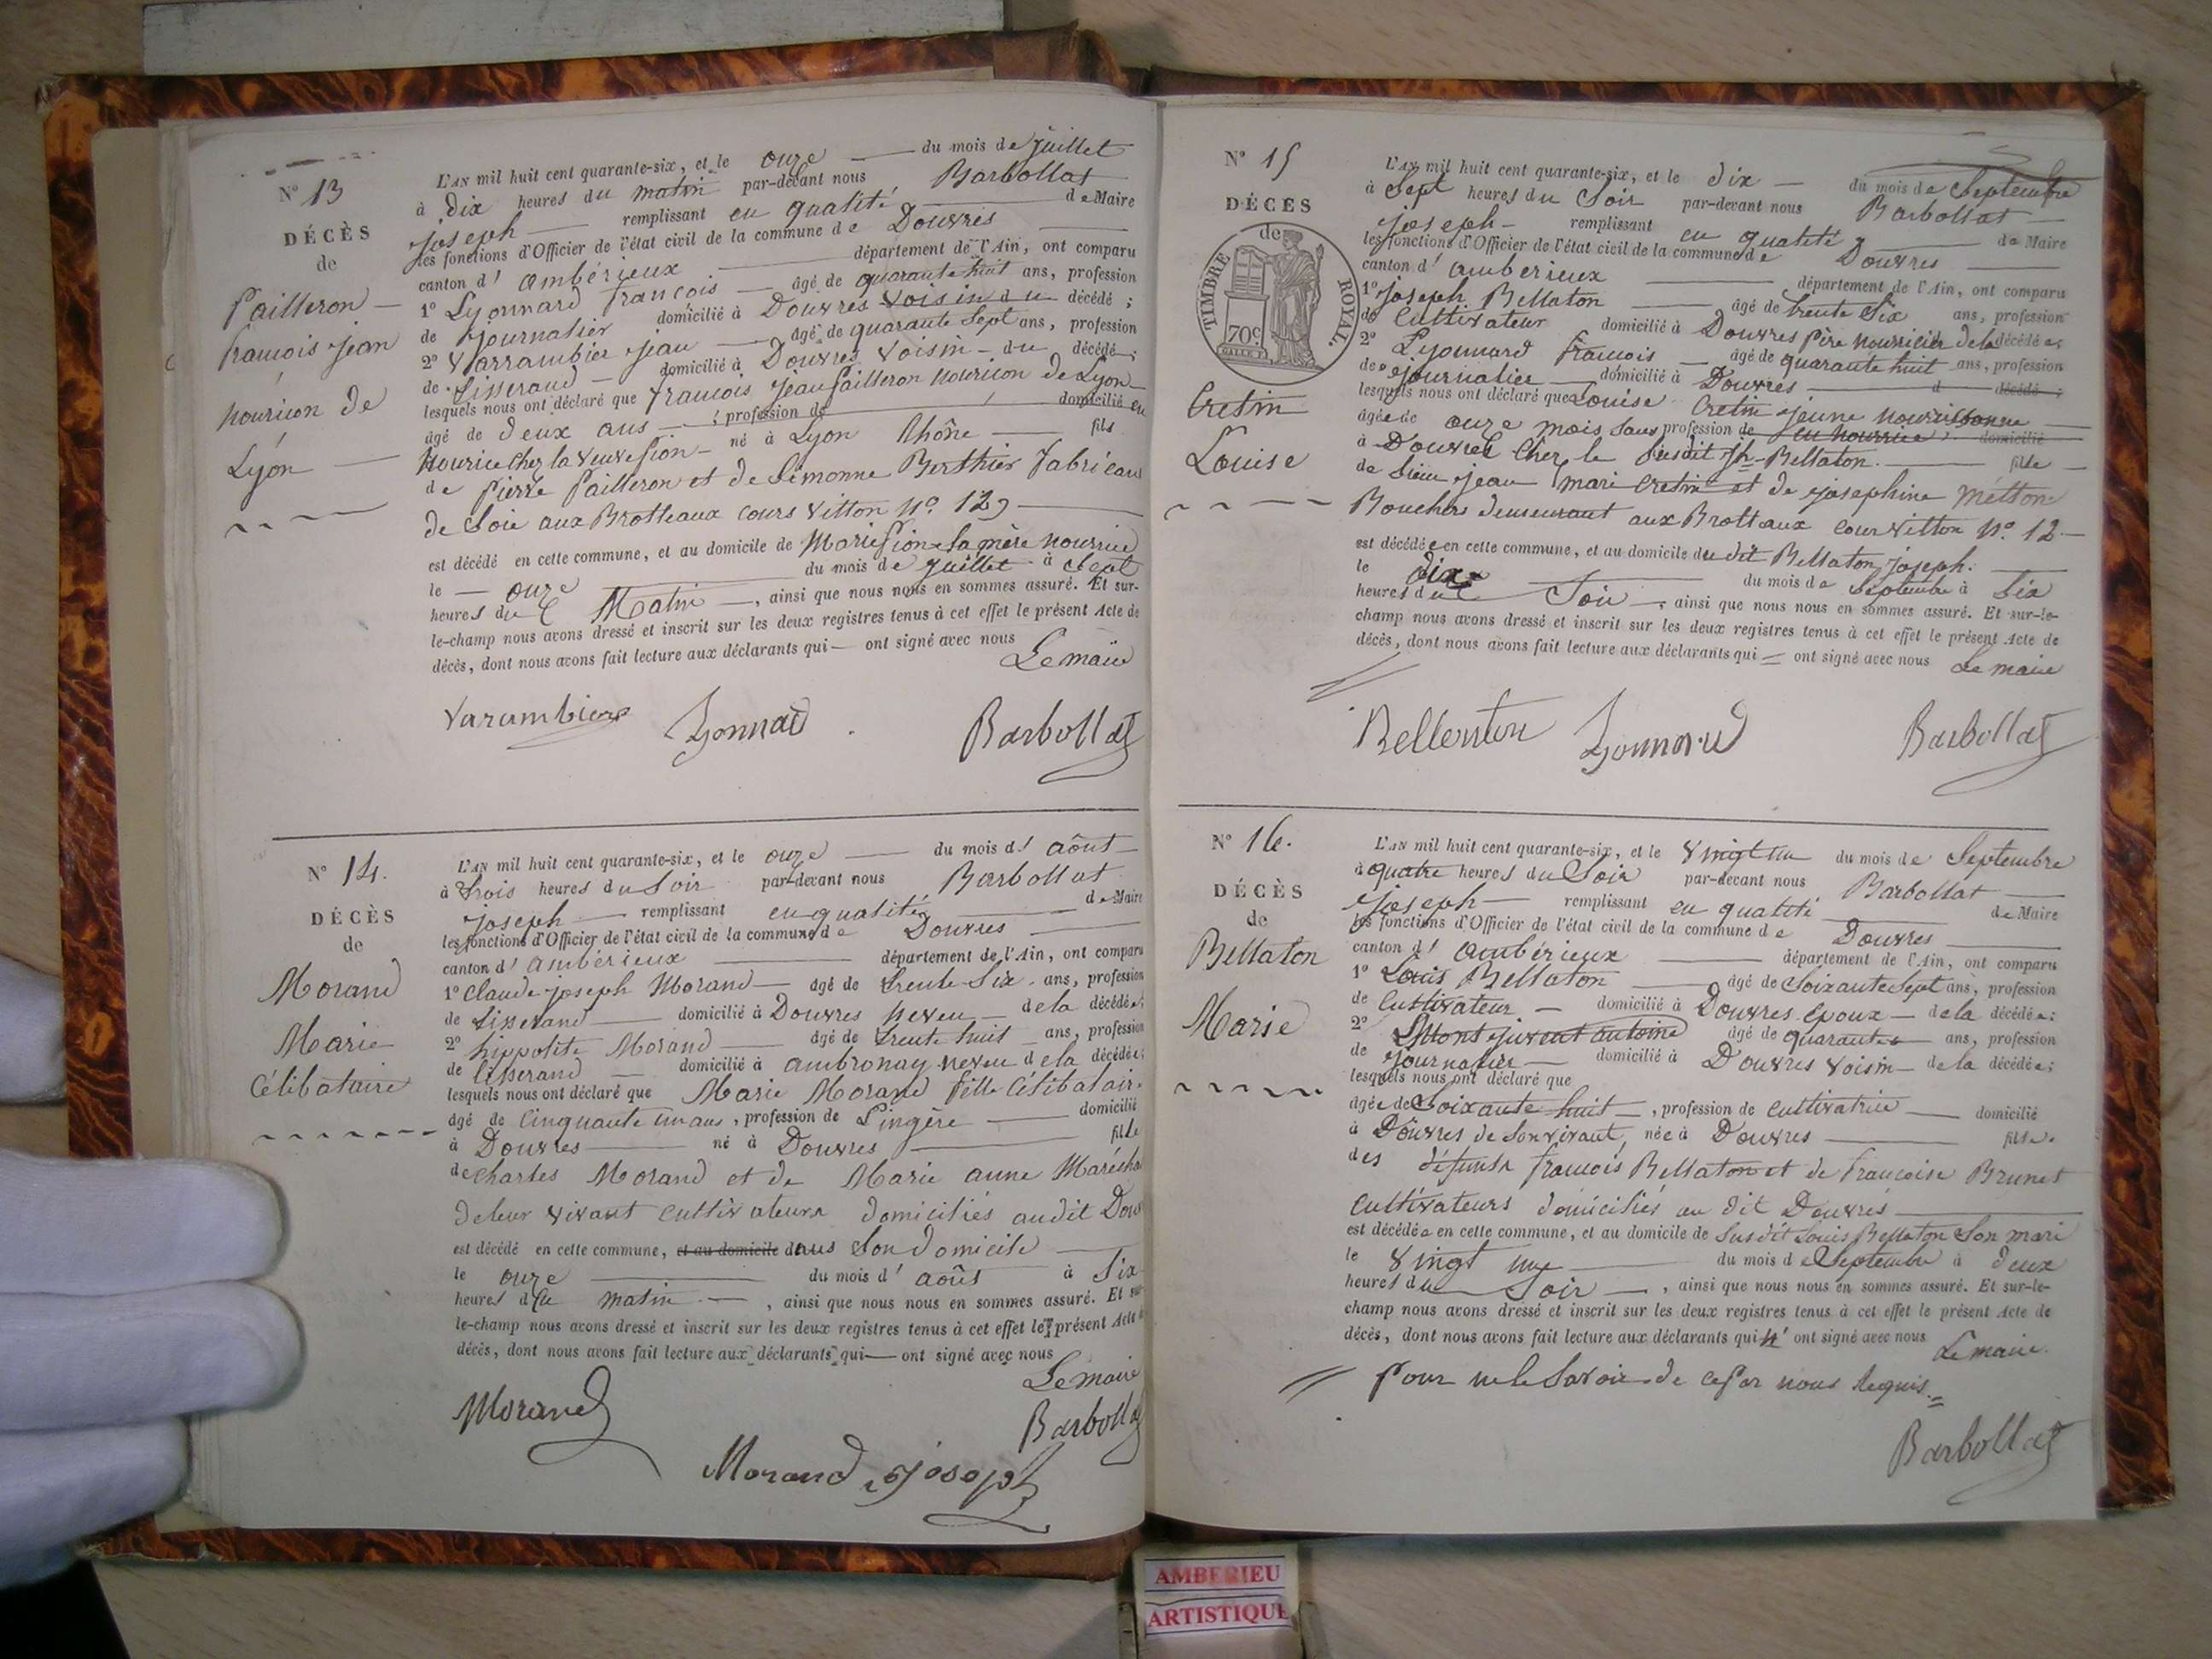 N° 13
DÉCÈS
de
Pailleron
françois jean
nourison de
Lyon
L'AN mil huit cent quarante-six, et le onze du mois de juillet
à dix heures du matin par-devant nous Barbollat
joseph remplissant en qualité de Maire
les fonctions d'Officier de l'état civil de la commune de Douvres
canton d' ambérieux département de l'Ain, ont comparu
1° Lyonnard françois âgé de quarante huit ans, profession
de journalier domicilié à Douvres voisin du décédé;
2° Varrambier jean âgé de quarante sept ans, profession
de tisserand domicilié à Douvres voisin du décédé;
lesquels nous ont déclaré que françois jean pailleron nourison de Lyon
âgé de deux ans, profession de domicilié en
Nourice chez la veuve sion né à Lyon Rhône fils
de pierre pailleron et de Simonne Berthier fabrican
de Soie aux Brotteaux cours vitton N° 129
est décédé en cette commune, et au domicile de Marie sion sa mère nourrice
le onze du mois de juillet à sept
heures du Matin, ainsi que nous nous en sommes assuré. Et sur-
le-champ nous avons dressé et inscrit sur les deux registres tenus à cet effet le présent Acte de
décès, dont nous avons fait lecture aux déclarants qui ont signé avec nous
Le maire
Varambier Lyonnard Barbollat
N° 14.
DÉCÈS
de
Morand
Marie
Célibataire
L'AN mil huit cent quarante-six, et le onze du mois d' aôut
à trois heures du Soir par-devant nous Barbollat
joseph remplissant en qualité de Maire
les fonctions d'Officier de l'état civil de la commune de Douvres
canton d' ambérieux département de l'Ain, ont comparu
1° Claude joseph Morand âgé de trente Six ans, profession
de tisserand domicilié à Douvres neveu de la décédée;
2° hippolite Morand âgé de trente huit ans, profession
de tisserand domicilié à ambronay neveu de la décédée;
lesquels nous ont déclaré que Marie Morand fille Célibataire
âgé de Cinquante un ans, profession de Lingère domicilié
à Douvres né à Douvres fille
de Charles Morand et de Marie anne Marécha
de leur vivant cultivateurs domiciliés audit Douv
est décédé en cette commune, et au domicile dans Son domicile
le onze du mois d' août à Six
heures du matin, ainsi que nous nous en sommes assuré. Et sur-
le-champ nous avons dressé et inscrit sur les deux registres tenus à cet effet le présent Acte de
décès, dont nous avons fait lecture aux déclarants qui ont signé avec nous
Le maire
Morand Barbollat
Morand joseph
N° 15
DÉCÈS
de
TIMBRE ROYAL.
70c.
Cretin
Louise
L'AN mil huit cent quarante-six, et le dix du mois de Septembre
à Sept heures du Soir par-devant nous Barbollat
joseph remplissant en qualité de Maire
les fonctions d'Officier de l'état civil de la commune de Douvres
canton d' amberieux département de l'Ain, ont comparu
1° joseph Bellaton âgé de trente Six ans, profession
de Cultivateur domicilié à Douvres père nourricier de la décédée;
2° Lyonnard françois âgé de quarante huit ans, profession
de journalier domicilié à Douvres d décédé;
lesquels nous ont déclaré que Louise Cretin jeune nourrissonne
âgée de onze mois Sans profession de en nourrice domicilié
à Douvres chez le Susdit jh Bellaton fille
de Sieur jean mari Cretin et de josephine Métton
Bouchers demeurant aux Brotteaux cour vitton N° 12
est décédée en cette commune, et au domicile du dit Bellaton joseph.
le dix du mois de Septembre à Six
heures du Soir, ainsi que nous nous en sommes assuré. Et sur-le-
champ nous avons dressé et inscrit sur les deux registres tenus à cet effet le présent Acte de
décès, dont nous avons fait lecture aux déclarants qui ont signé avec nous Le maire
Bellenton Lyonnard Barbollat
N° 16.
DÉCÈS
de
Bellaton
Marie
L'AN mil huit cent quarante-six, et le vingt un du mois de Septembre
à quatre heures du Soir par-devant nous Barbollat
joseph remplissant en qualité de Maire
les fonctions d'Officier de l'état civil de la commune de Douvres
canton d' ambérieux département de l'Ain, ont comparu
1° Louis Bellaton âgé de Soixante Sept ans, profession
de Cultivateur domicilié à Douvres époux de la décédée;
2° antoine âgé de quarante ans, profession
de journalier domicilié à Douvres voisin de la décédée;
lesquels nous ont déclaré que
âgée de Soixante huit, profession de cultivatrice domicilié
à Douvres de Son vivant, née à Douvres fille
des défunts françois Bellaton et de françoise Brunet
cultivateurs domiciliés au dit Douvres
est décédée en cette commune, et au domicile de Susdit Louis Bellaton Son mari
le vingt un du mois de Septembre à deux
heures du Soir, ainsi que nous nous en sommes assuré. Et sur-le-
champ nous avons dressé et inscrit sur les deux registres tenus à cet effet le présent Acte de
décès, dont nous avons fait lecture aux déclarants qui n' ont signé avec nous Le maire
pour ne le Savoir de ce par nous Requis.
Barbollat
AMBERIEU
ARTISTIQUE